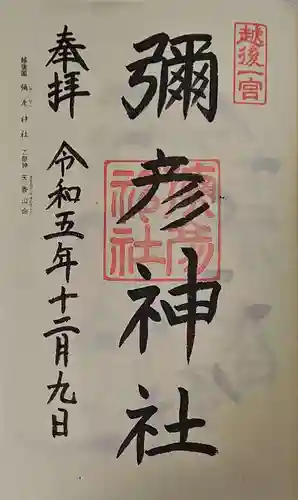 越後一宮
彌彦神社
彌彦神社
奉拝
令和五年十二月九日
越後國 彌彦神社 ご祭神 天香山命